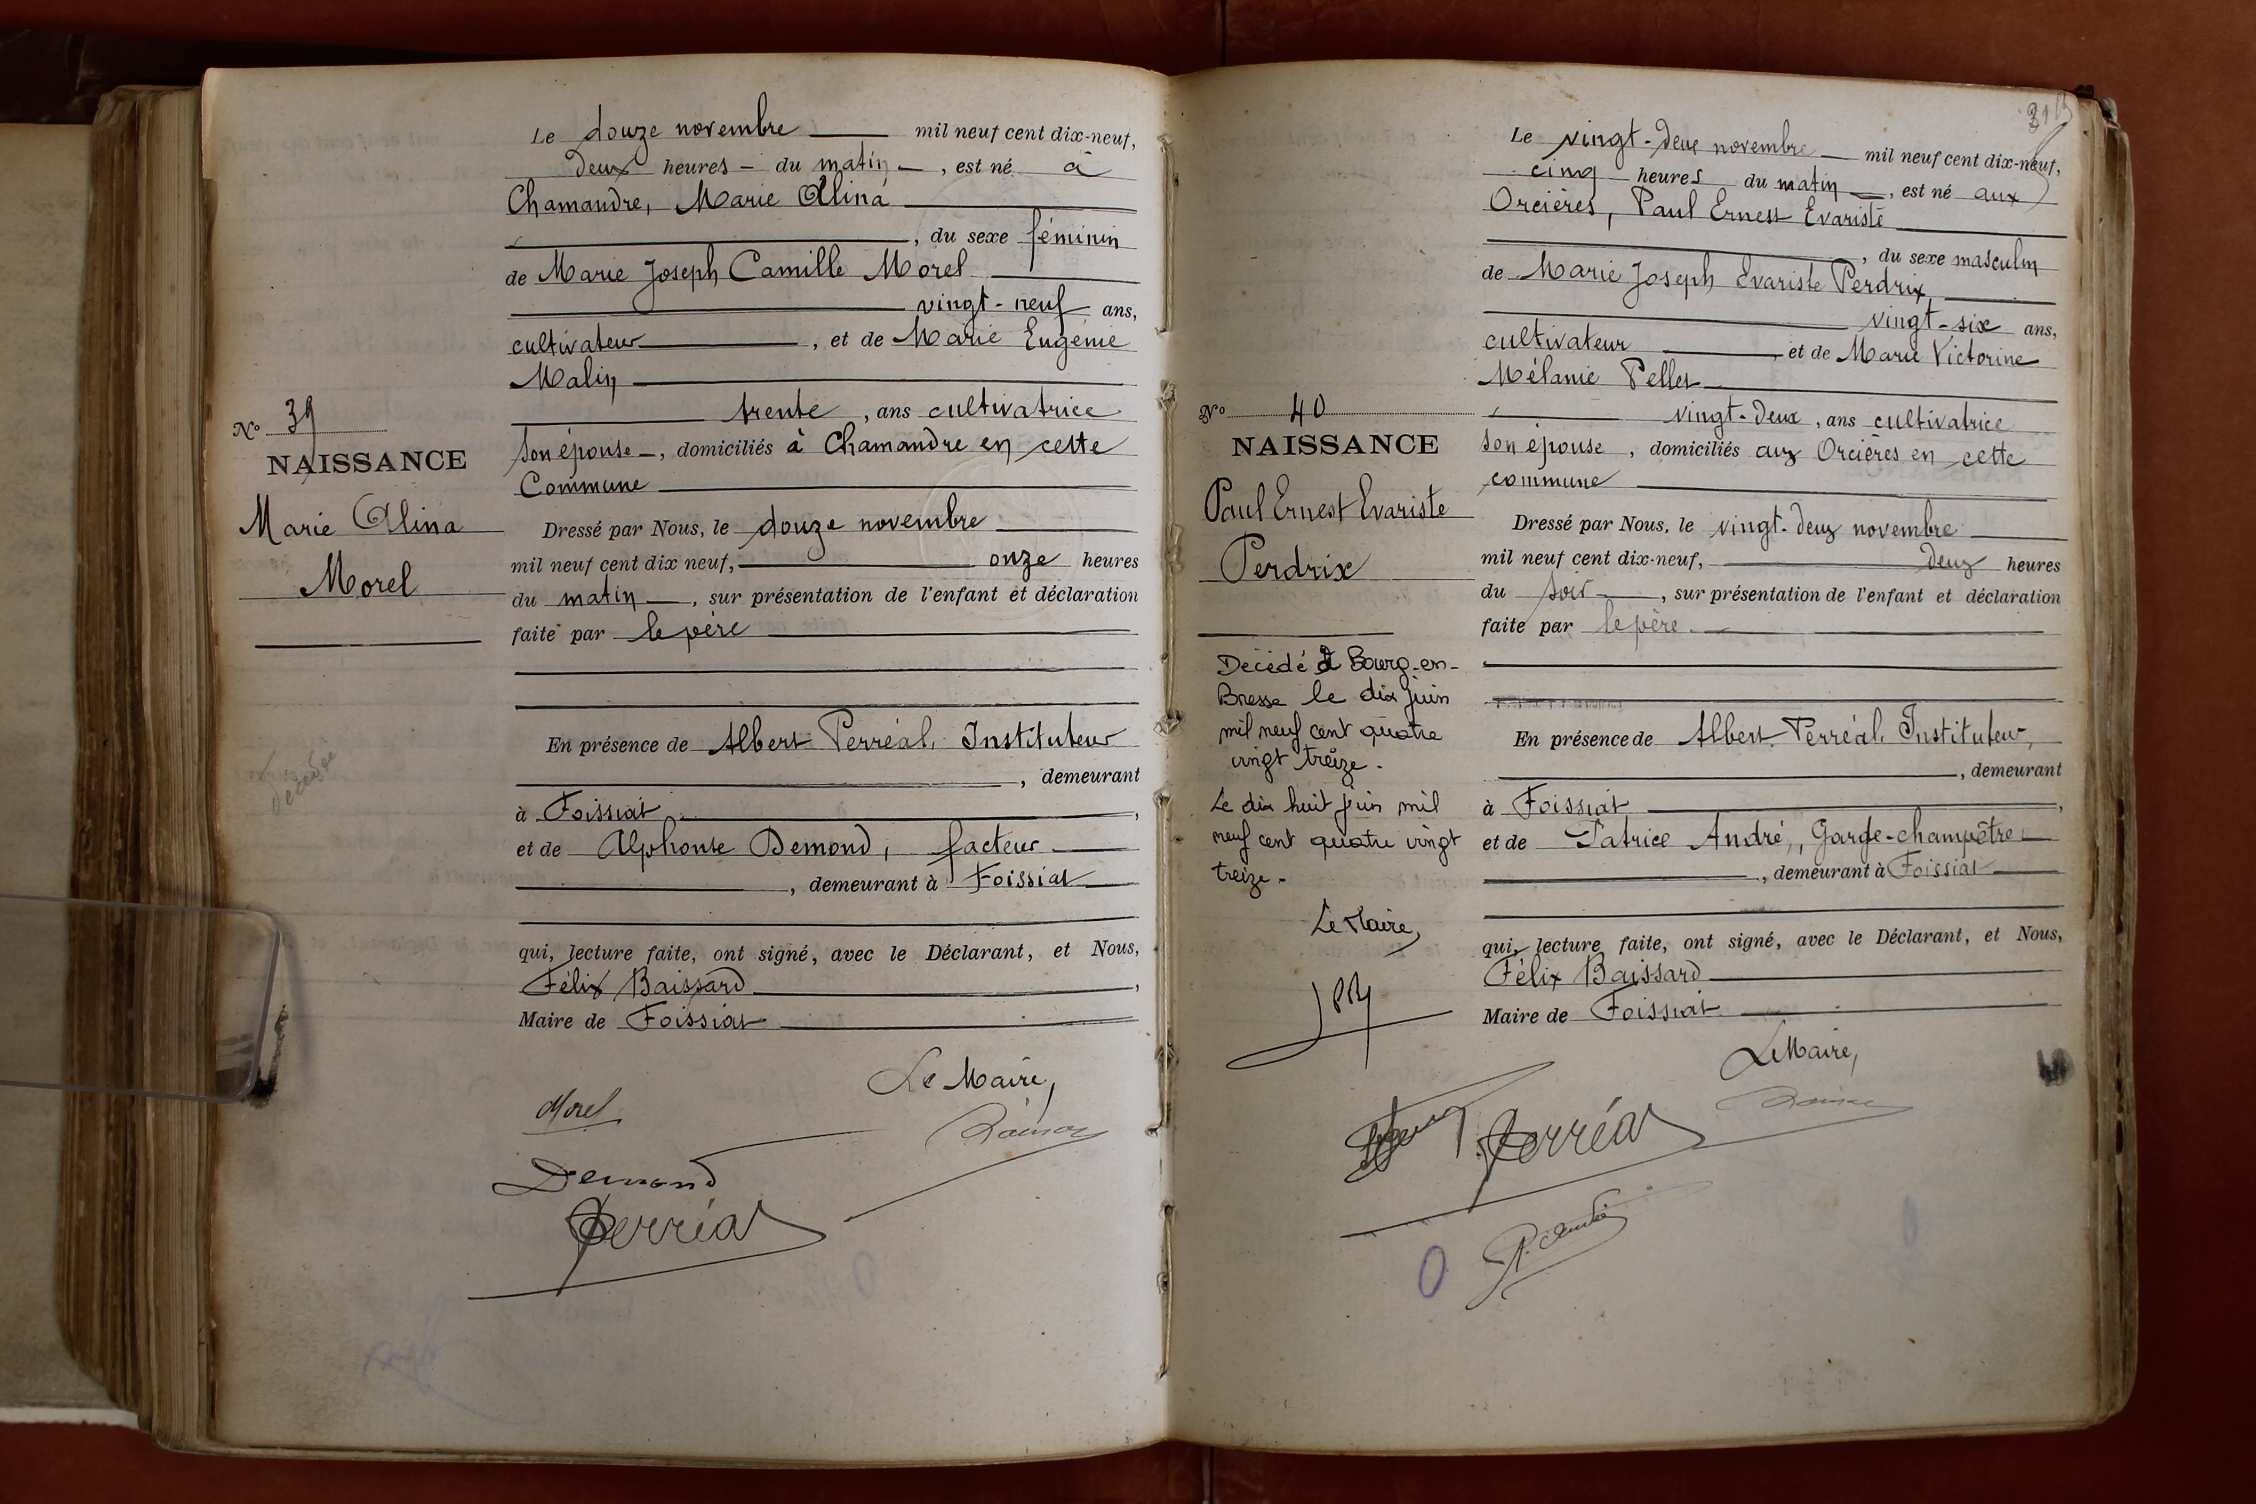 Le douze novembre mil neuf cent dix-neuf,
deux heures - du matin, est né à
Chamandre, Marie Alina
, du sexe féminin
de Marie Joseph Camille Morel
vingt-neuf ans,
cultivateur, et de Marie Eugénie
Malin
trente, ans cultivatrice
son épouse, domiciliés à Chamandre en cette
Commune
No 39
NAISSANCE
Marie Alina
Morel
Dressé par Nous, le douze novembre
mil neuf cent dix neuf, onze heures
du matin, sur présentation de l'enfant et déclaration
faite par le père
En présence de Albert Perréal, Instituteur
, demeurant
à Foissiat,
et de Alphonse Demond, facteur
, demeurant à Foissiat
qui, lecture faite, ont signé, avec le Déclarant, et Nous,
Félix Baissard,
Maire de Foissiat
décédée
Le Maire,
Morel
Demond
Perréal
Le vingt-deux novembre mil neuf cent dix-neuf,
cinq heures du matin, est né aux
Orcières, Paul Ernest Evariste
, du sexe masculin
de Marie Joseph Evariste Perdrix,
vingt-six ans,
cultivateur, et de Marie Victorine
Mélanie Pellet
vingt-deux, ans cultivatrice
son épouse, domiciliés aux Orcières en cette
commune
No 40
NAISSANCE
Paul Ernest Evariste
Perdrix
Dressé par Nous, le vingt-deux novembre
mil neuf cent dix-neuf, deux heures
du soir, sur présentation de l'enfant et déclaration
faite par le père
Décédé à Bourg-en-
Bresse le dix juin
mil neuf cent quatre
vingt treize.
Le dix huit juin mil
neuf cent quatre vingt
treize.
Le Maire,
En présence de Albert Perréal, Instituteur,
, demeurant
à Foissiat,
et de Patrice André, Garde-champêtre
, demeurant à Foissiat
qui, lecture faite, ont signé, avec le Déclarant, et Nous,
Félix Baissard
Maire de Foissiat
Le Maire,
Perréal
P. André